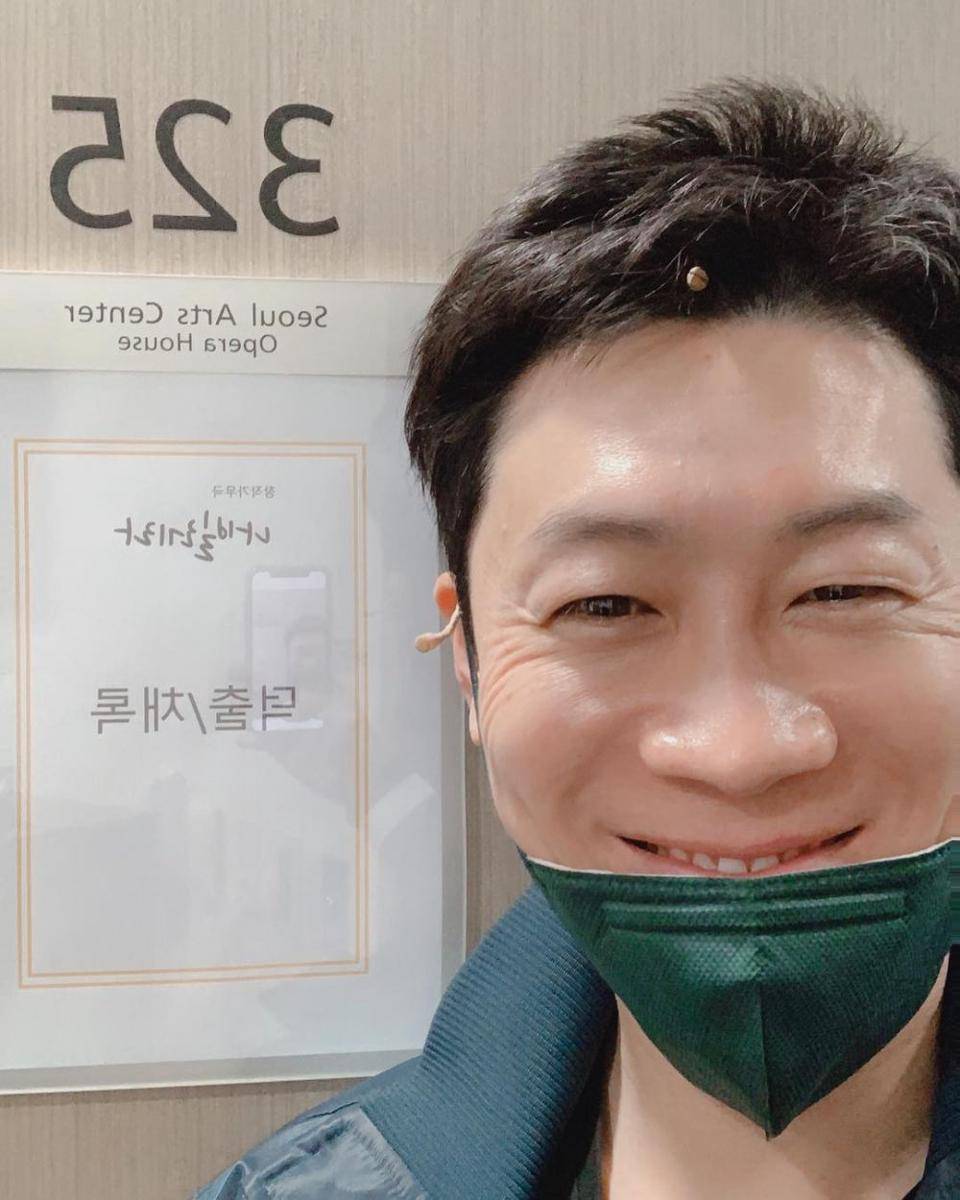 325
Seoul Arts Center
Opera House
창작가무극
나빌레라
덕출/채록